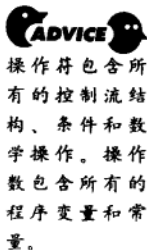 ADVICE
操作符包含所
有的控制流结
构、条件和数
学操作。操作
数包含所有的
程序变量和常
量。